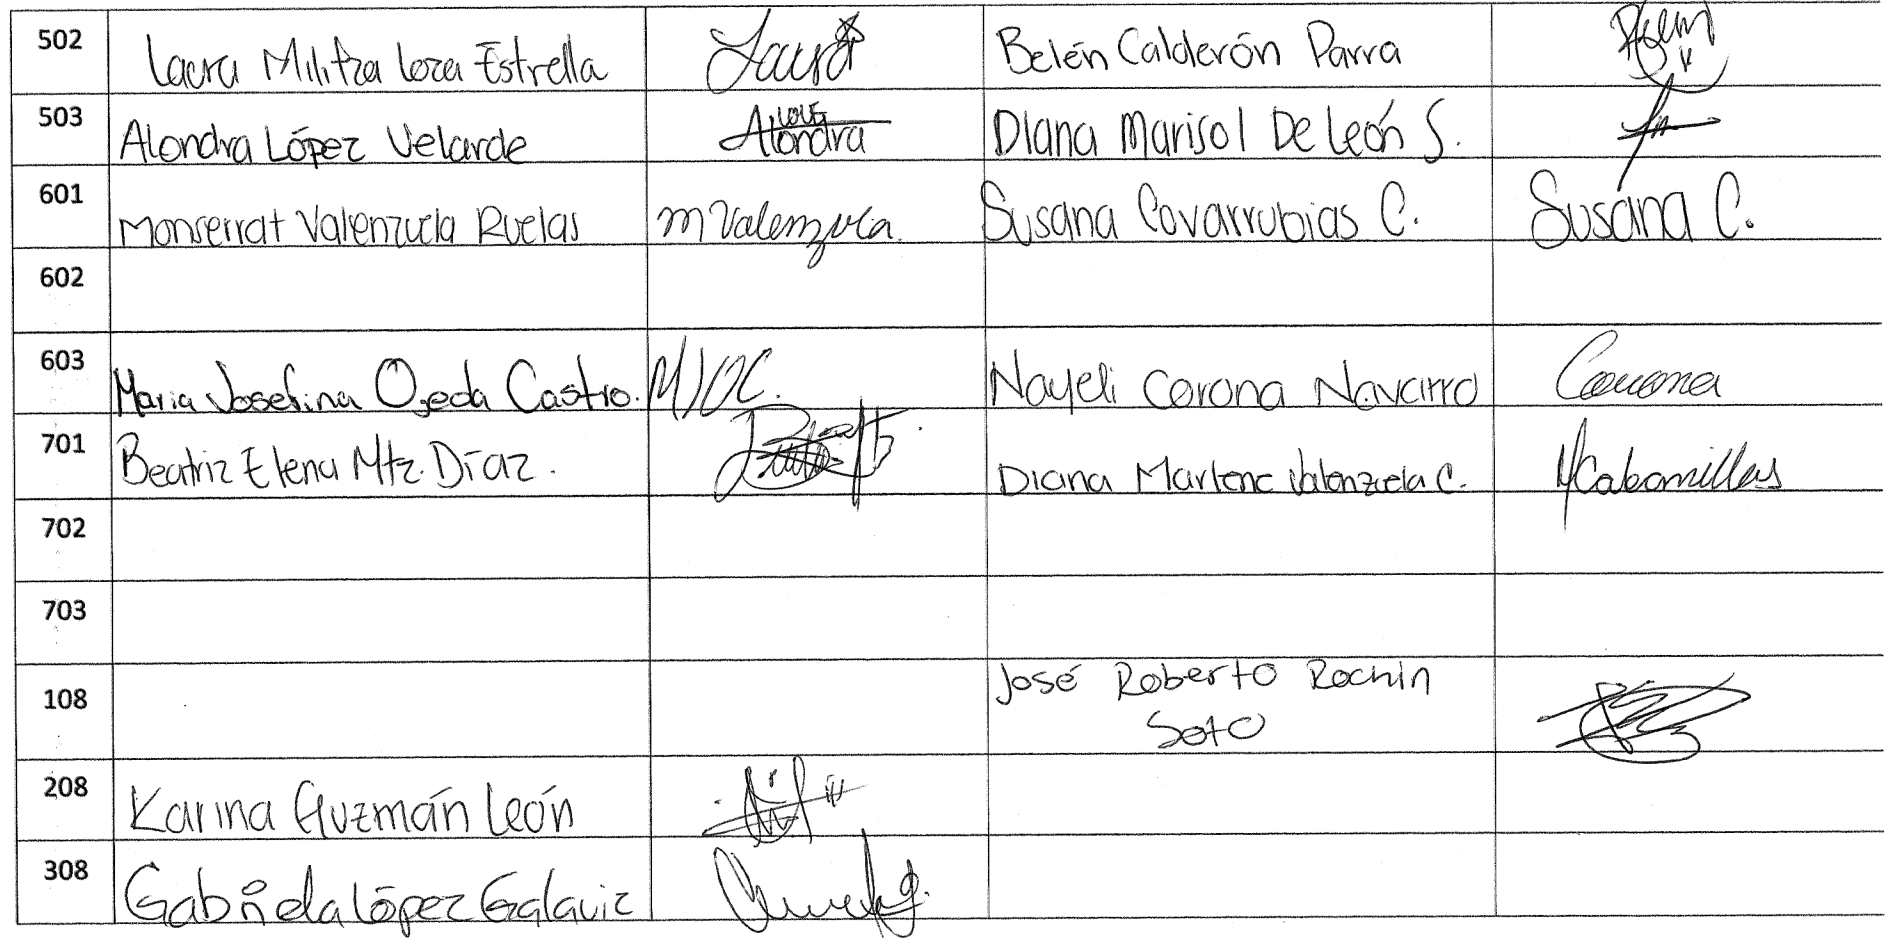 502 Laura Militza Loza Estrella Laura Belén Calderón Parra
503 Alondra López Velarde Alondra Diana Marisol De León S.
601 Monserrat Valenzuela Ruelas M Valenzuela. Susana Covarrubias C. Susana C.
602
603 Maria Josefina Ojeda Castro. MJOC. Nayeli Corona Navarro Corona
701 Beatriz Elena Mtz. Díaz. Diana Marlene Valenzuela C. Cabanillas
702
703
108 José Roberto Rochin
Soto
208 Karina Guzmán León
308 Gabriela López Galaviz